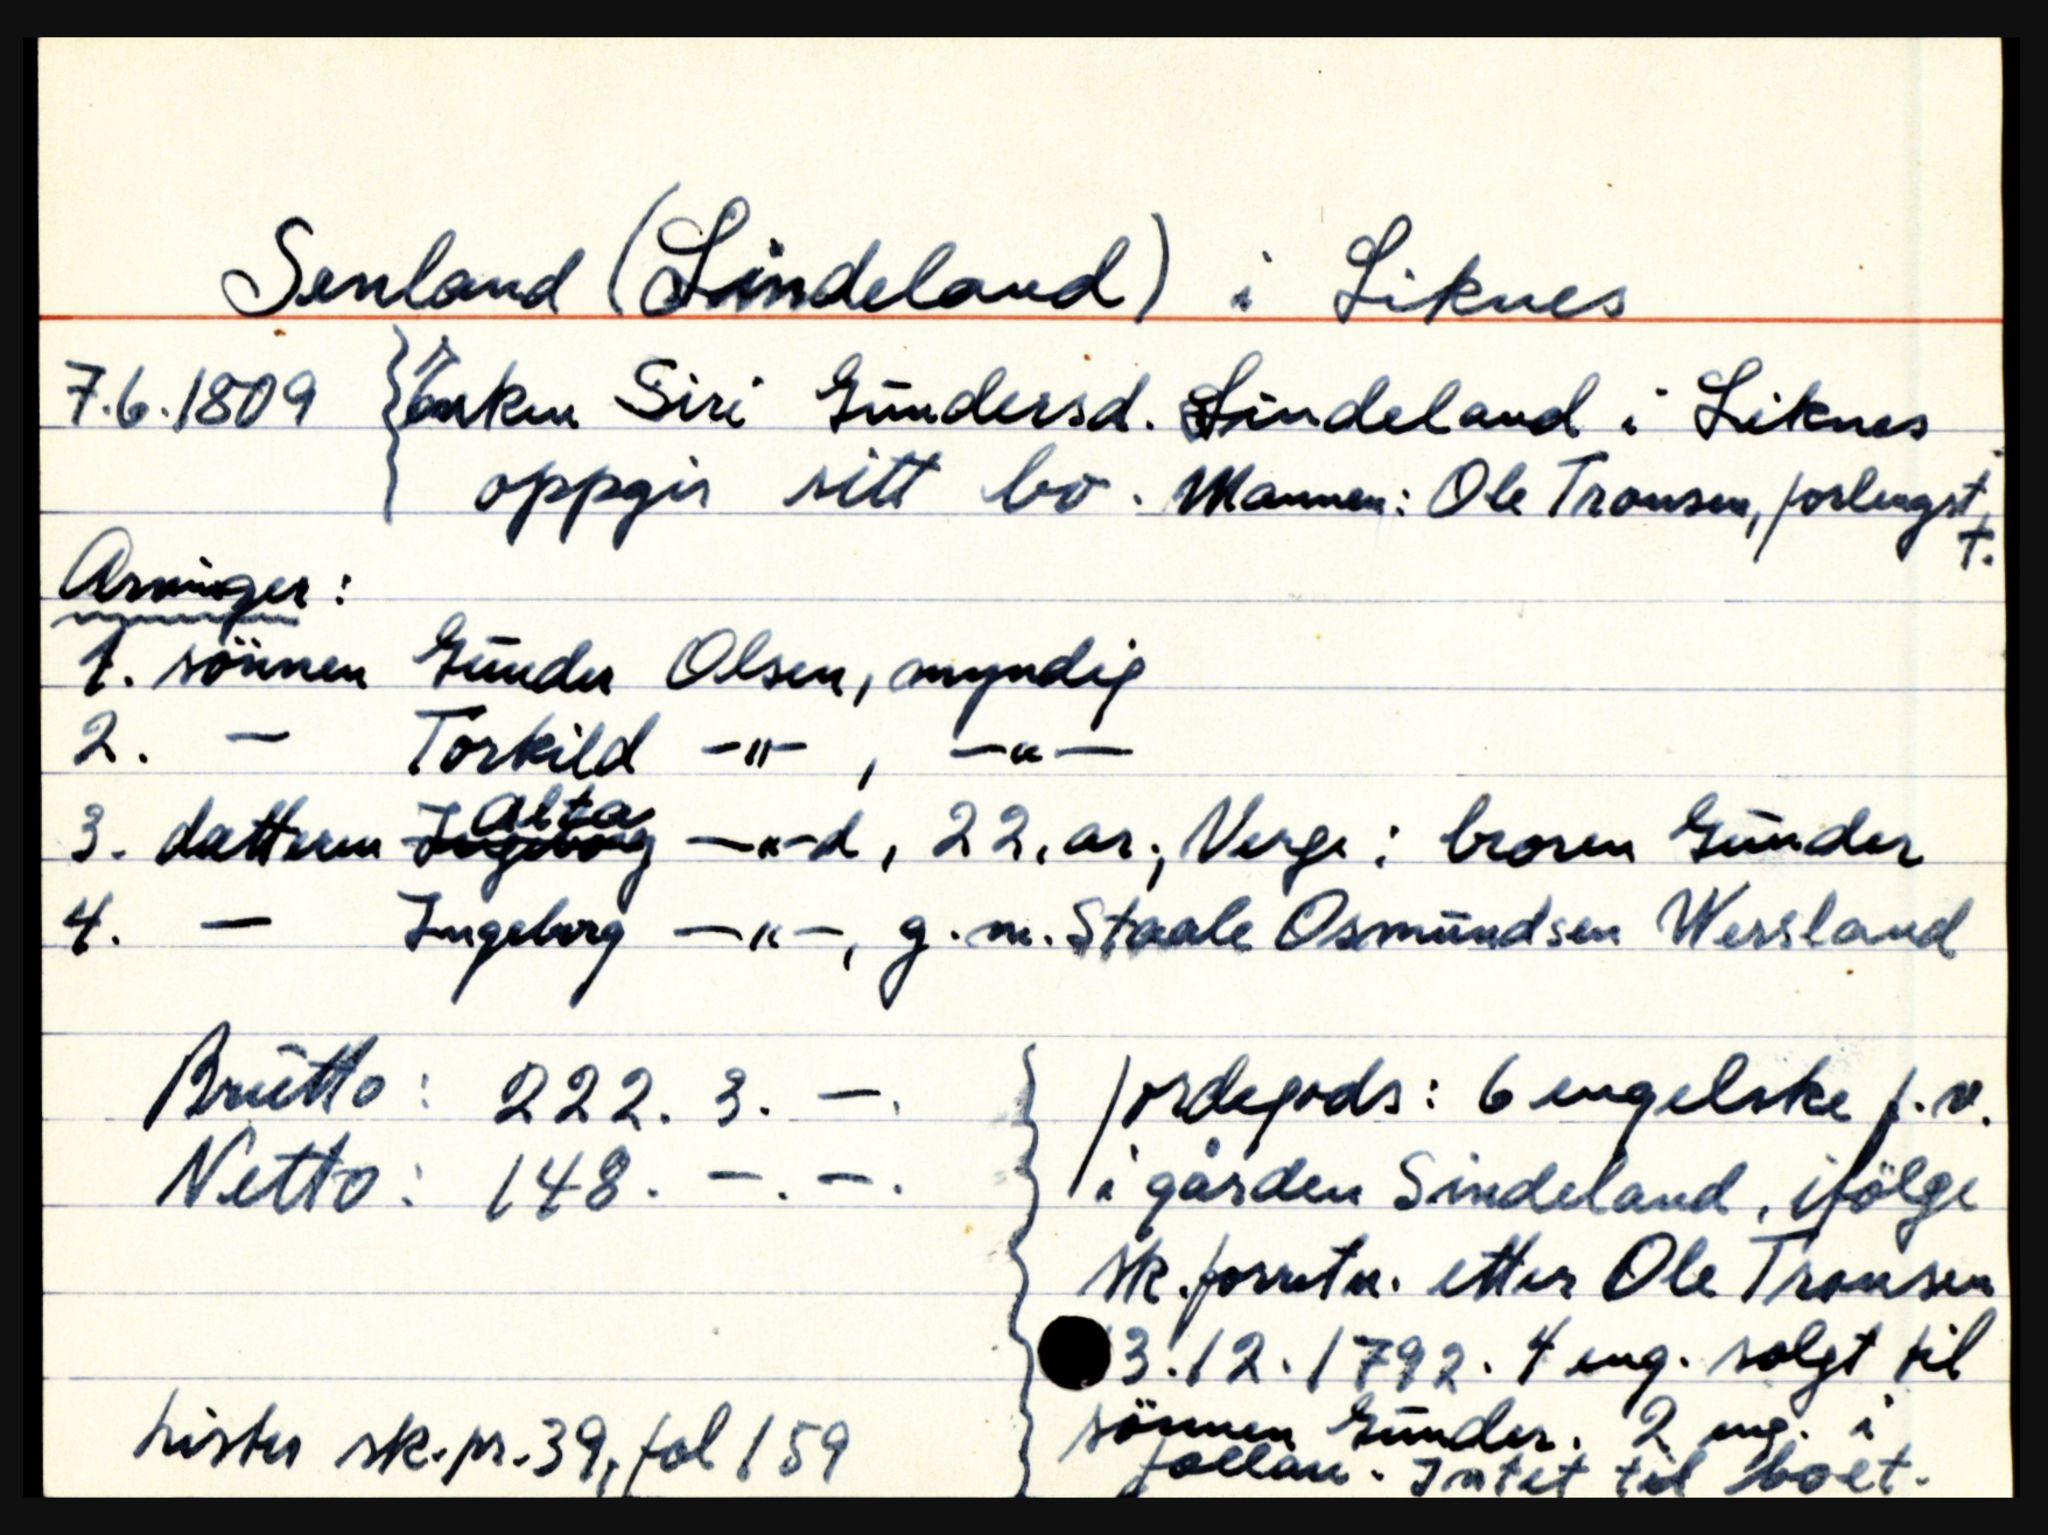 Senland (Sindeland) i Liknes
7.6.1809 Enken Siri Gündersd. Sindeland i Liknes
oppgir sitt bo. Mannen: Ole Tronsen, forlengst †.
Arvinger:
1. sönnen Günder Olsen, myndig
2. — Torkild —"— , —"—
3. datteren Alta —"—d, 22. ar., Verge: broren Günder
4. — Ingeborg —"—, g. m. Staale Osmündsen Wersland
Brütto: 222. 3. —.
Netto: 148. —. —.
Lister sk.pr. 39, fol 159
jordegods: 6 engelske i
i gården Sindeland, ifölge
sk. forretn. etter Ole Tronsen
3.12.1792. 4 eng. solgt til
sönnen Günder. 2 eng. i
follau. Intet til boet.